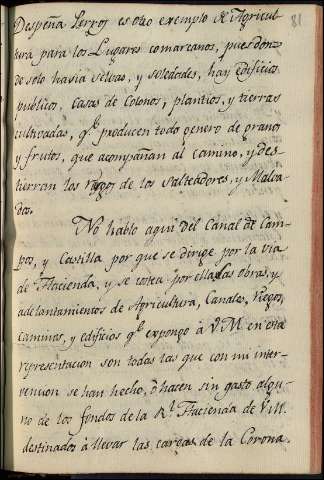 81
Despeña Perros es otro exemplo de Agricul-
tura para los Lugares comarcanos, pues donde
solo havia selvas, y soledades, hay edificios
publicos, casas de Colonos, plantios, y tierras
cultivadas, q.e producen todo genero de granos
y frutos, que acompañan al camino, y des-
tierran los riesgos de los Salteadores, y Malva-
dos.
No hablo aqui del Canal de Cam-
pos, y Castilla por que se dirige por la via
de Hacienda, y se costea por ella. Las obras, y
adelantamientos de Agricultura, Canales, Riegos,
Caminos, y edificios q.e expongo à V.M. en esta
representacion son todas las que con mi inter-
vencion se han hecho, ò hacen sin gasto algu-
no de los fondos de la R.l Hacienda de V.M.
destinados à llevar las cargas de la Corona.